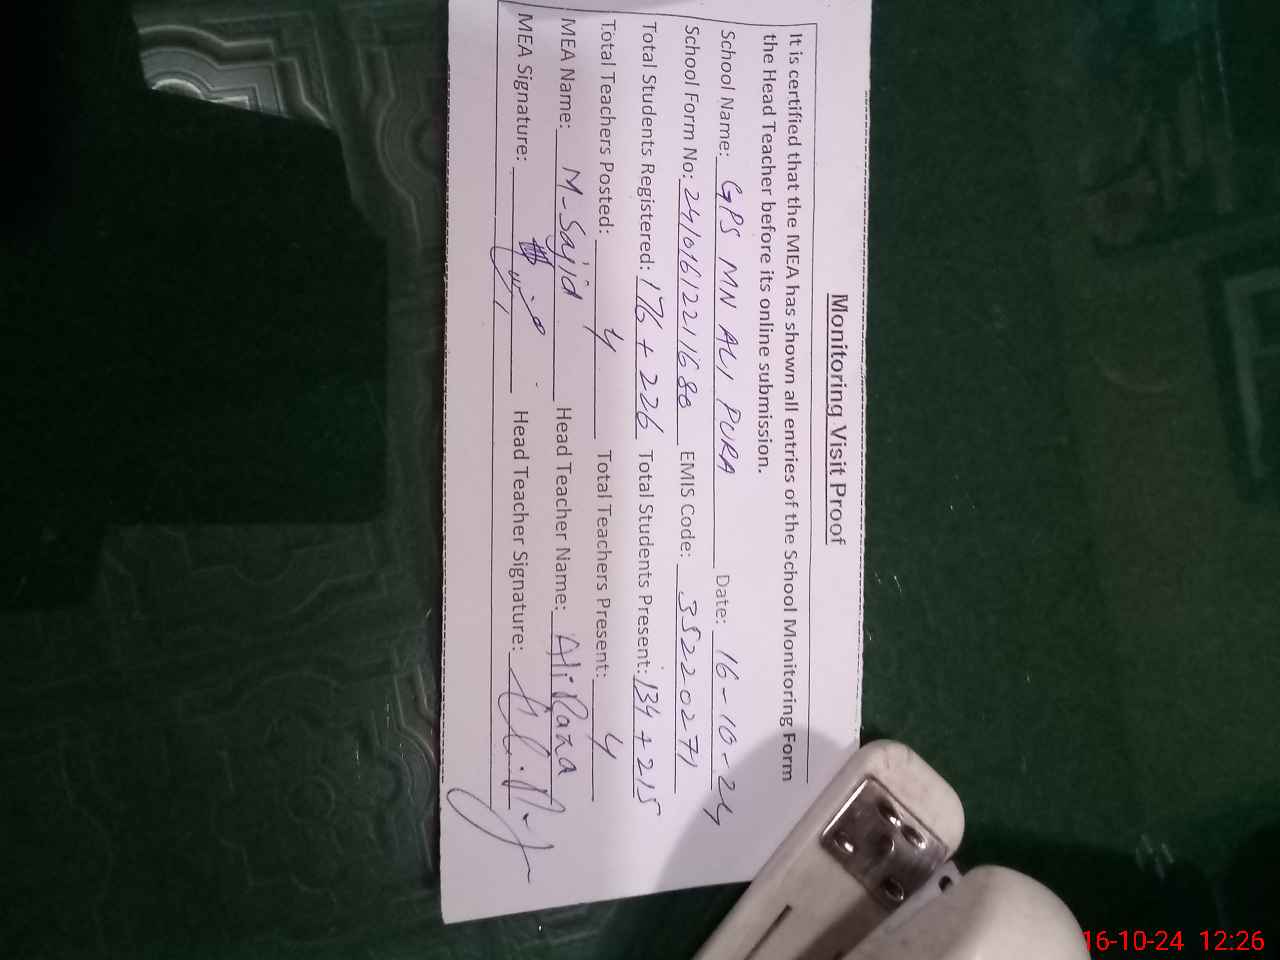 Monitoring Visit Proof
It is certified that the MEA has shown all entries of the School Monitoring Form
the Head Teacher before its online submission.
School Name: GPS MN ALI PURA Date: 16-10-24
School Form No: 241016122111688 EMIS Code: 35220271
Total Students Registered: 176 + 226 Total Students Present: 134 + 215
Total Teachers Posted: 4 Total Teachers Present: 4
MEA Name: M-Sajid Head Teacher Name: Ali Raza
MEA Signature: Head Teacher Signature:
16-10-24 12:26